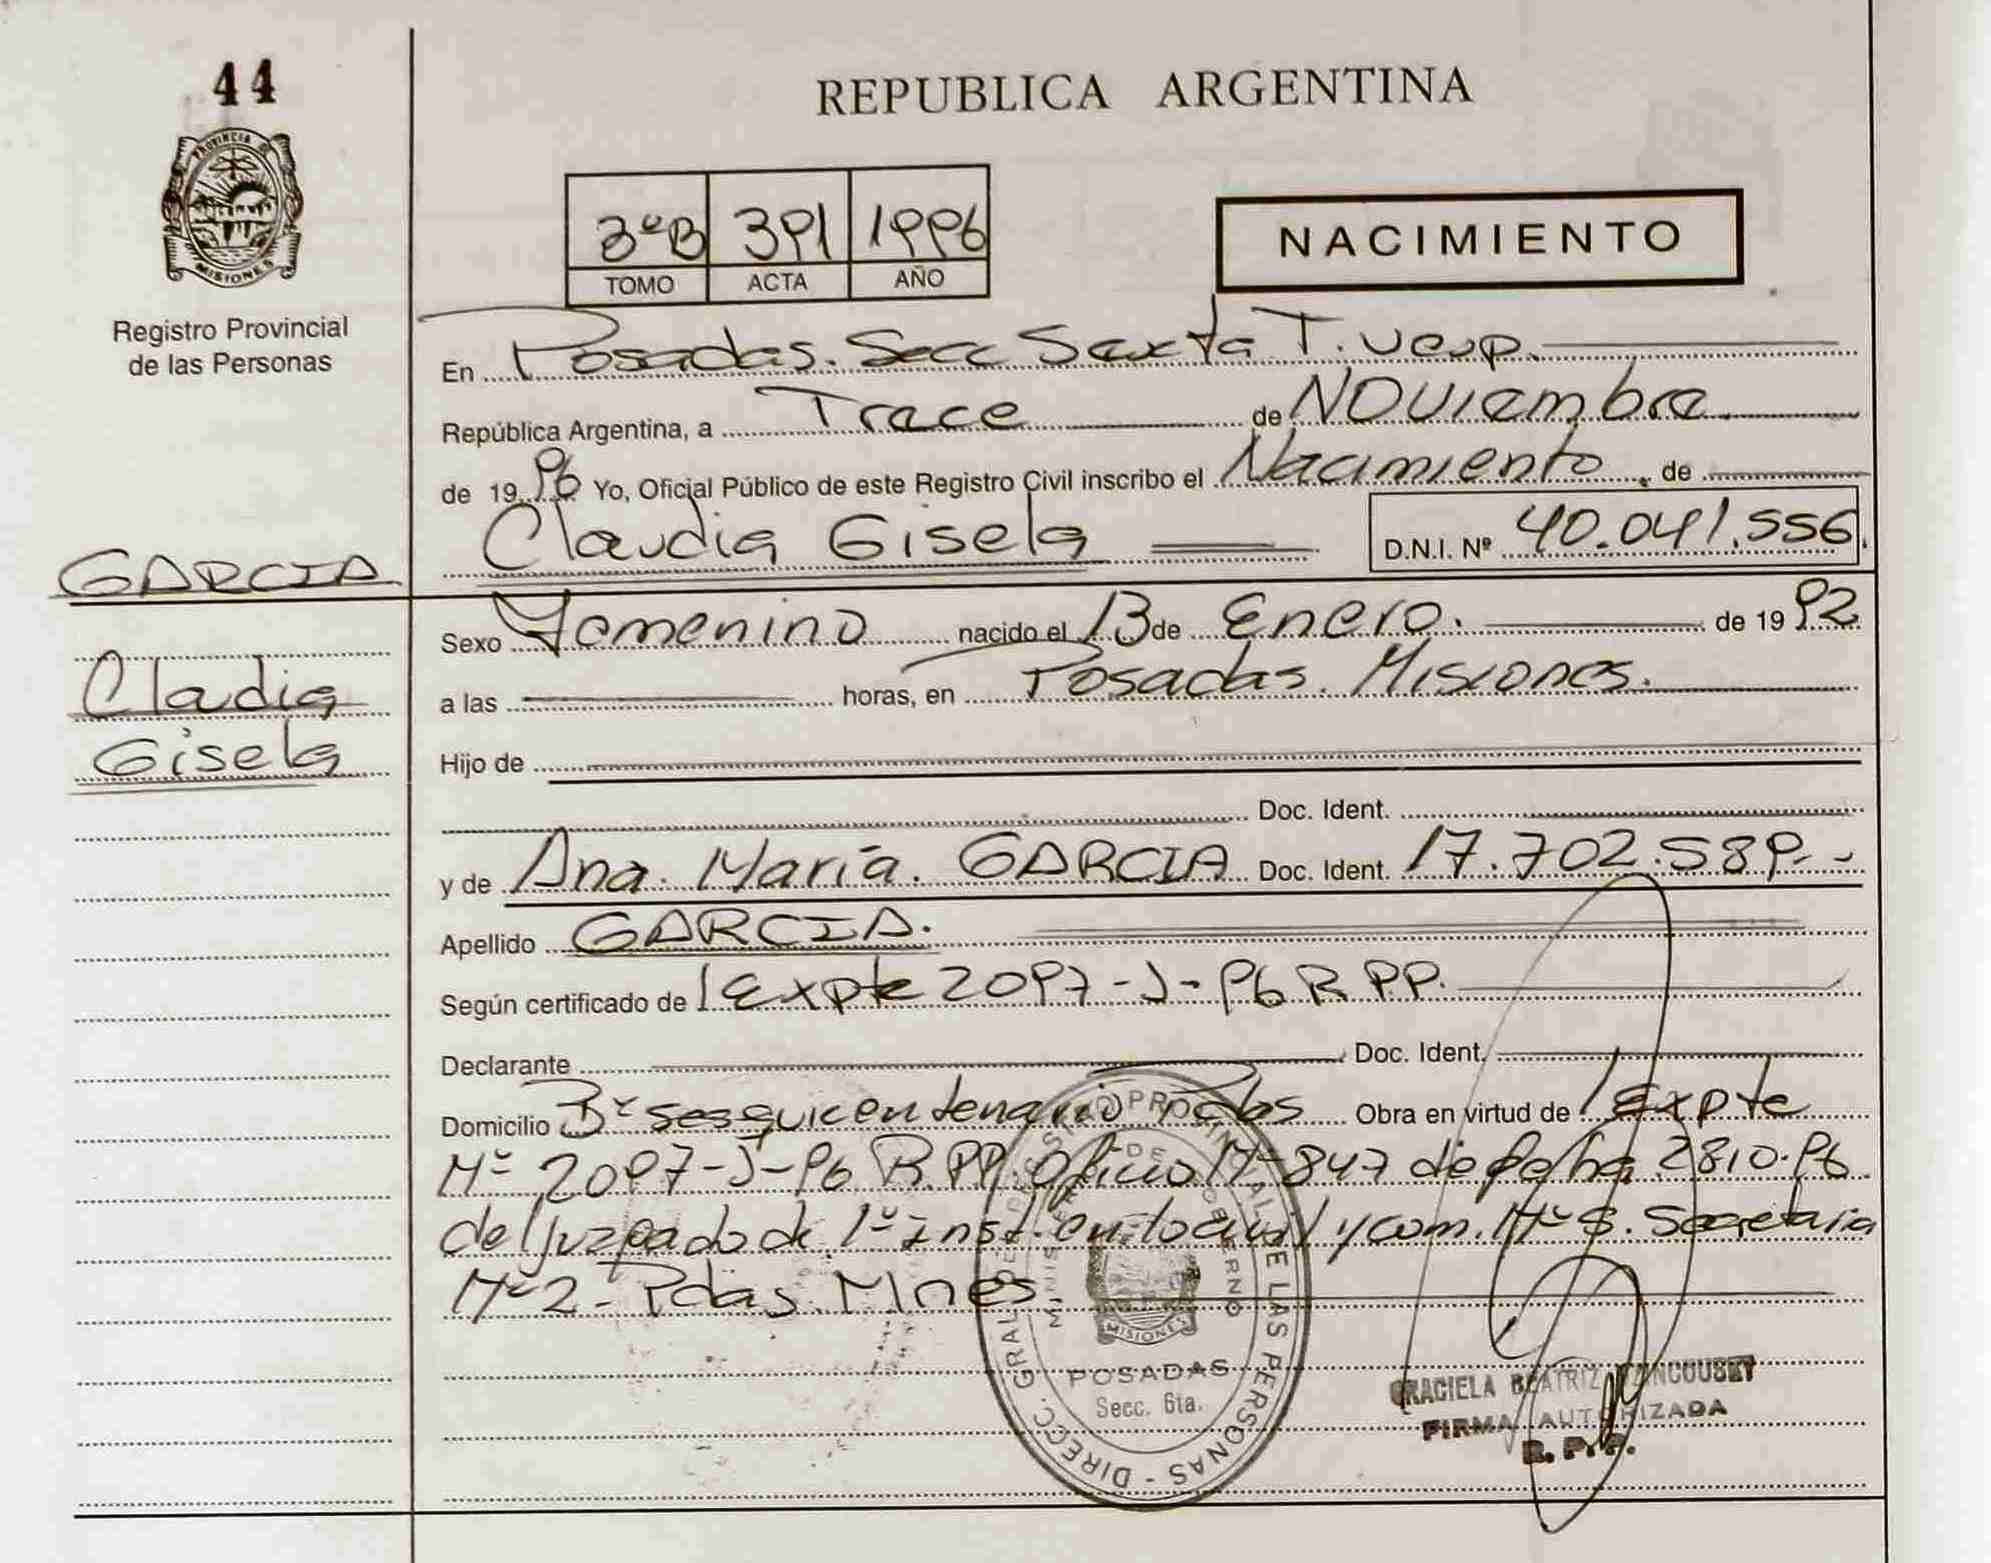 44
REPUBLICA ARGENTINA
PROVINCIA D
MISIONES
Registro Provincial
de las Personas
3ºB 391 1996
TOMO ACTA AÑO
NACIMIENTO
En Posadas. Secc Sexta T. Vesp.
República Argentina, a Trece de Noviembre
de 1996 Yo, Oficial Público de este Registro Civil inscribo el Nacimiento, de
Claudia Gisela D.N.I. Nº 40.041.556
GARCIA
Cladia
Gisela
Sexo Femenino nacido el 13 de Enero. de 1992
a las horas, en Posadas. Misiones.
Hijo de
Doc. Ident.
y de Ana. María. GARCIA Doc. Ident. 17.702.589.-
Apellido GARCIA.
Según certificado de Expte 2097-J-96 R.PP.
Declarante Doc. Ident.
Domicilio Bº Sesquicentenario Pdas Obra en virtud de Expte
Nº 2097-J-96 R.PP. Oficio Nº 847 de fecha 2810.96
del Juzgado de 1º Inst. en lo civil y com. Nº 8. Secretaria
Nº 2 - Pdas. Mnes
DIRECC. GRAL. DE REGISTRO PROVINCIAL DE LAS PERSONAS -
MINIS DE GOBIERNO
MISIONES
POSADAS
Secc. 6ta.
GRACIELA BEATRIZ
FIRMA AUTORIZADA
R. P. P.